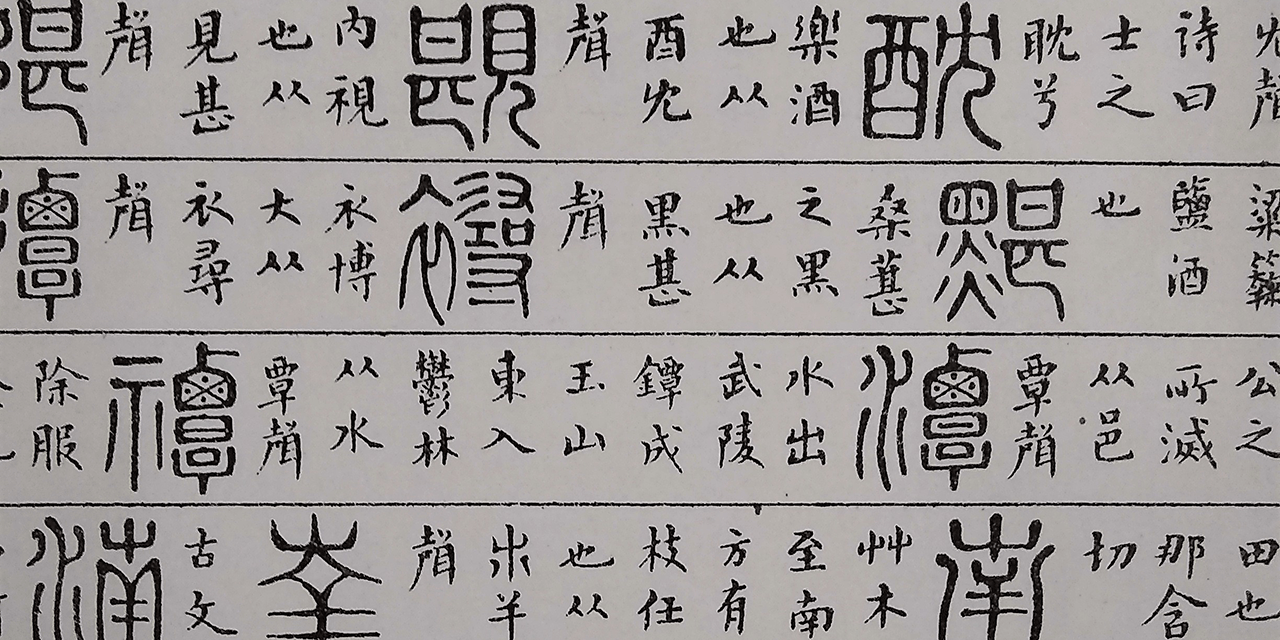 冘聲詩曰士之耽兮酖樂酒也从酉冘聲內視也从見甚聲
鹽酒也黮桑葚之黑也从黑甚聲襑衣博大从衣尋聲
公之所滅从邑覃聲潭水出武陵鐔成玉山東入鬱林从水覃聲禫除服
田也那含切南艸木至南方有枝任也从𣎵羊聲古文湳